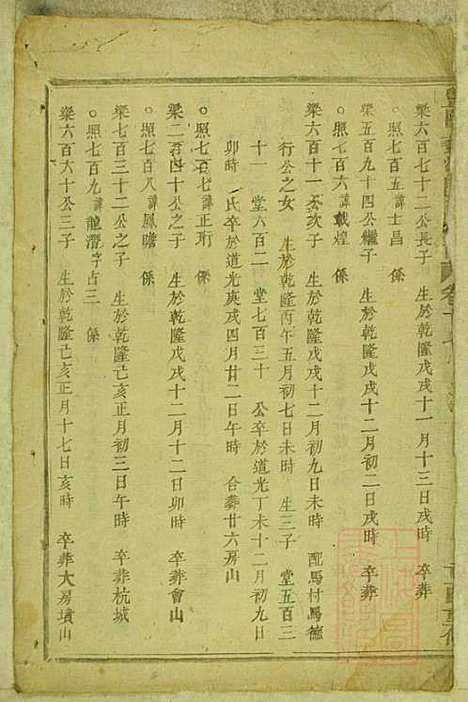 梁六百七十二公長子　生於乾隆戊戌十一月十三日戌時　卒葬
○照七百五　諱士昌　係
梁五百九十四公繼子　生於乾隆戊戌十二月初二日戌時　卒葬
○照七百六　諱戴煌　係
梁六百十一公次子　生於乾隆戊戌十二月初九日未時　配馬村馬德
行公之女　生於乾隆丙午五月初七日未時　生三子　堂五百三
十一　堂六百二　堂七百三十　公卒於道光丁未十二月初九日
卯時　氏卒於道光庚戌四月廿二日午時　合葬廿六房山
○照七百七　諱正珩　係
梁二百四十公之子　生於乾隆戊戌十二月十二日卯時　卒葬會山
○照七百八　諱鳳瞻　係
梁七百三十二公之子　生於乾隆己亥正月初三日午時　卒葬杭城
○照七百九　諱龍潛　字占三　係
梁六百六十公三子　生於乾隆己亥正月十七日亥時　卒葬大房墳山